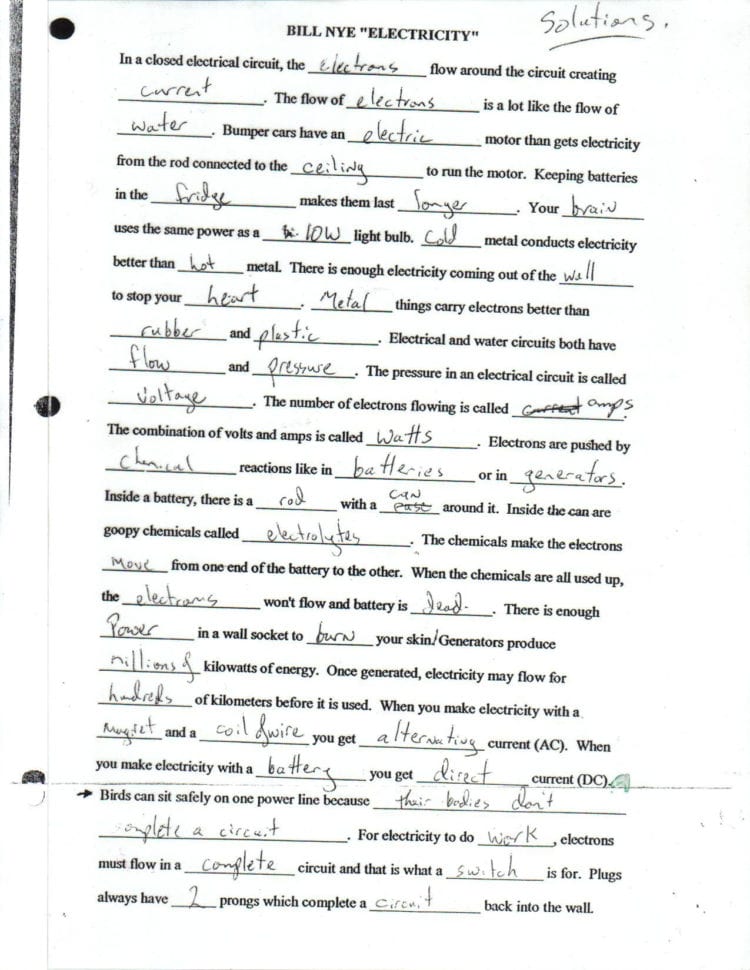 Solutions.
BILL NYE "ELECTRICITY"
In a closed electrical circuit, the electrons flow around the circuit creating
current. The flow of electrons is a lot like the flow of
water. Bumper cars have an electric motor than gets electricity
from the rod connected to the ceiling to run the motor. Keeping batteries
in the fridge makes them last longer. Your brain
uses the same power as a 10W light bulb. Cold metal conducts electricity
better than hot metal. There is enough electricity coming out of the wall
to stop your heart. Metal things carry electrons better than
rubber and plastic. Electrical and water circuits both have
flow and pressure. The pressure in an electrical circuit is called
voltage. The number of electrons flowing is called current amps.
The combination of volts and amps is called watts. Electrons are pushed by
chemical reactions like in batteries or in generators.
Inside a battery, there is a rod with a can around it. Inside the can are
goopy chemicals called electrolytes. The chemicals make the electrons
move from one end of the battery to the other. When the chemicals are all used up,
the electrons won't flow and battery is dead. There is enough
Power in a wall socket to burn your skin/Generators produce
millions of kilowatts of energy. Once generated, electricity may flow for
hundreds of kilometers before it is used. When you make electricity with a
Magnet and a coil of wire you get alternating current (AC). When
you make electricity with a battery you get direct current (DC).
Birds can sit safely on one power line because their bodies don't
complete a circuit. For electricity to do work, electrons
must flow in a complete circuit and that is what a switch is for. Plugs
always have 2 prongs which complete a circuit back into the wall.